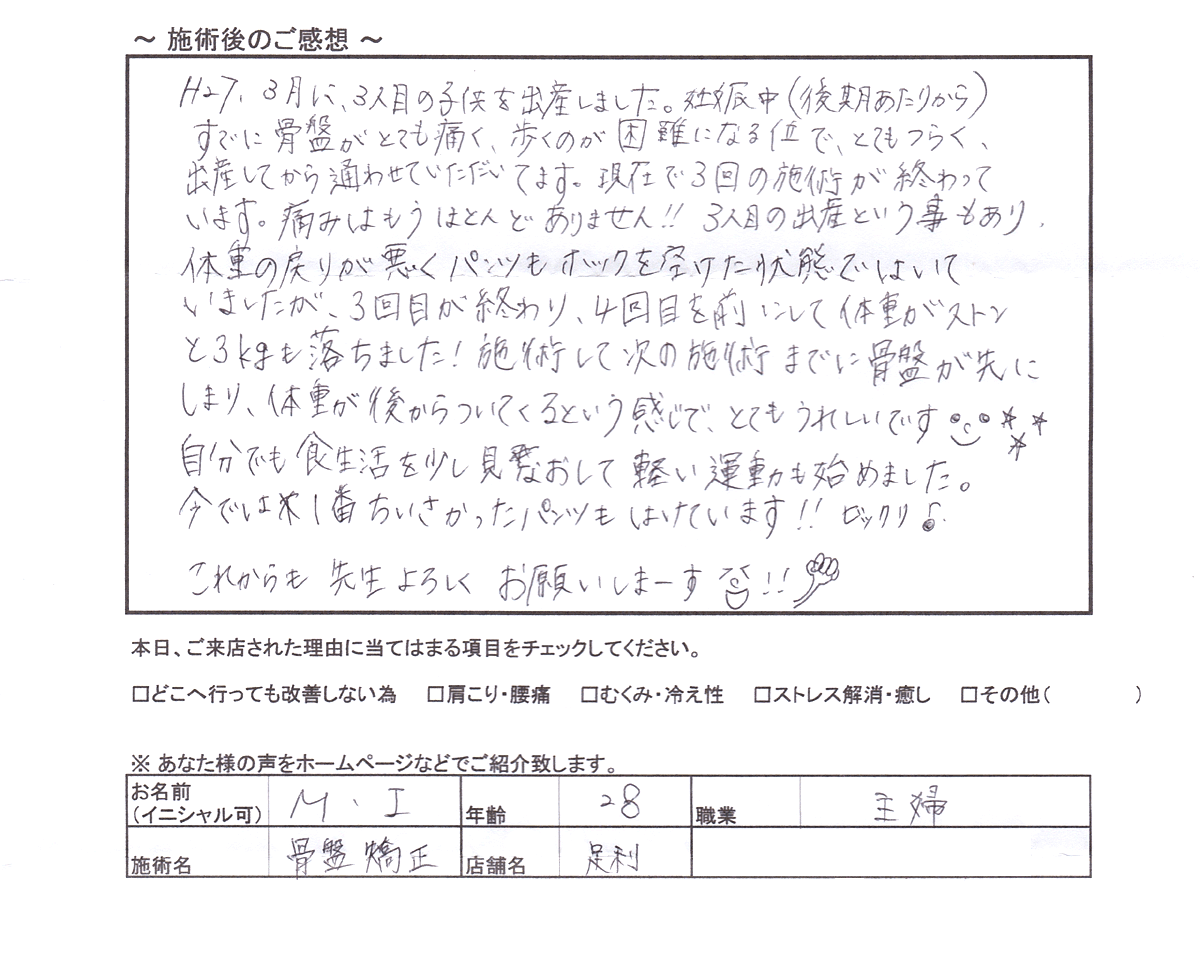 ～ 施術後のご感想 ～
H27、3月に、3人目の子供を出産しました。妊娠中(後期あたりから)
すでに骨盤がとても痛く、歩くのが困難になる位で、とてもつらく、
出産してから通わせていただいてます。現在で3回の施術が終わって
います。痛みはもうほとんどありません!! 3人目の出産という事もあり、
体重の戻りが悪くパンツもホックを空けた状態ではいて
いましたが、3回目が終わり、4回目を前にして体重がストン
と3kgも落ちました! 施術して次の施術までに骨盤が先に
しまり、体重が後からついてくるという感じで、とてもうれしいです
自分でも食生活を少し見直なおして軽い運動も始めました。
今では1番ちいさかったパンツもはけています!! ビックリ♪
これからも先生よろしくお願いしまーす!!
本日、ご来店された理由に当てはまる項目をチェックしてください。
□どこへ行っても改善しない為 □肩こり・腰痛 □むくみ・冷え性 □ストレス解消・癒し □その他( )
※ あなた様の声をホームページなどでご紹介致します。
お名前
(イニシャル可) M・I 年齢 28 職業 主婦
施術名 骨盤矯正 店舗名 足利